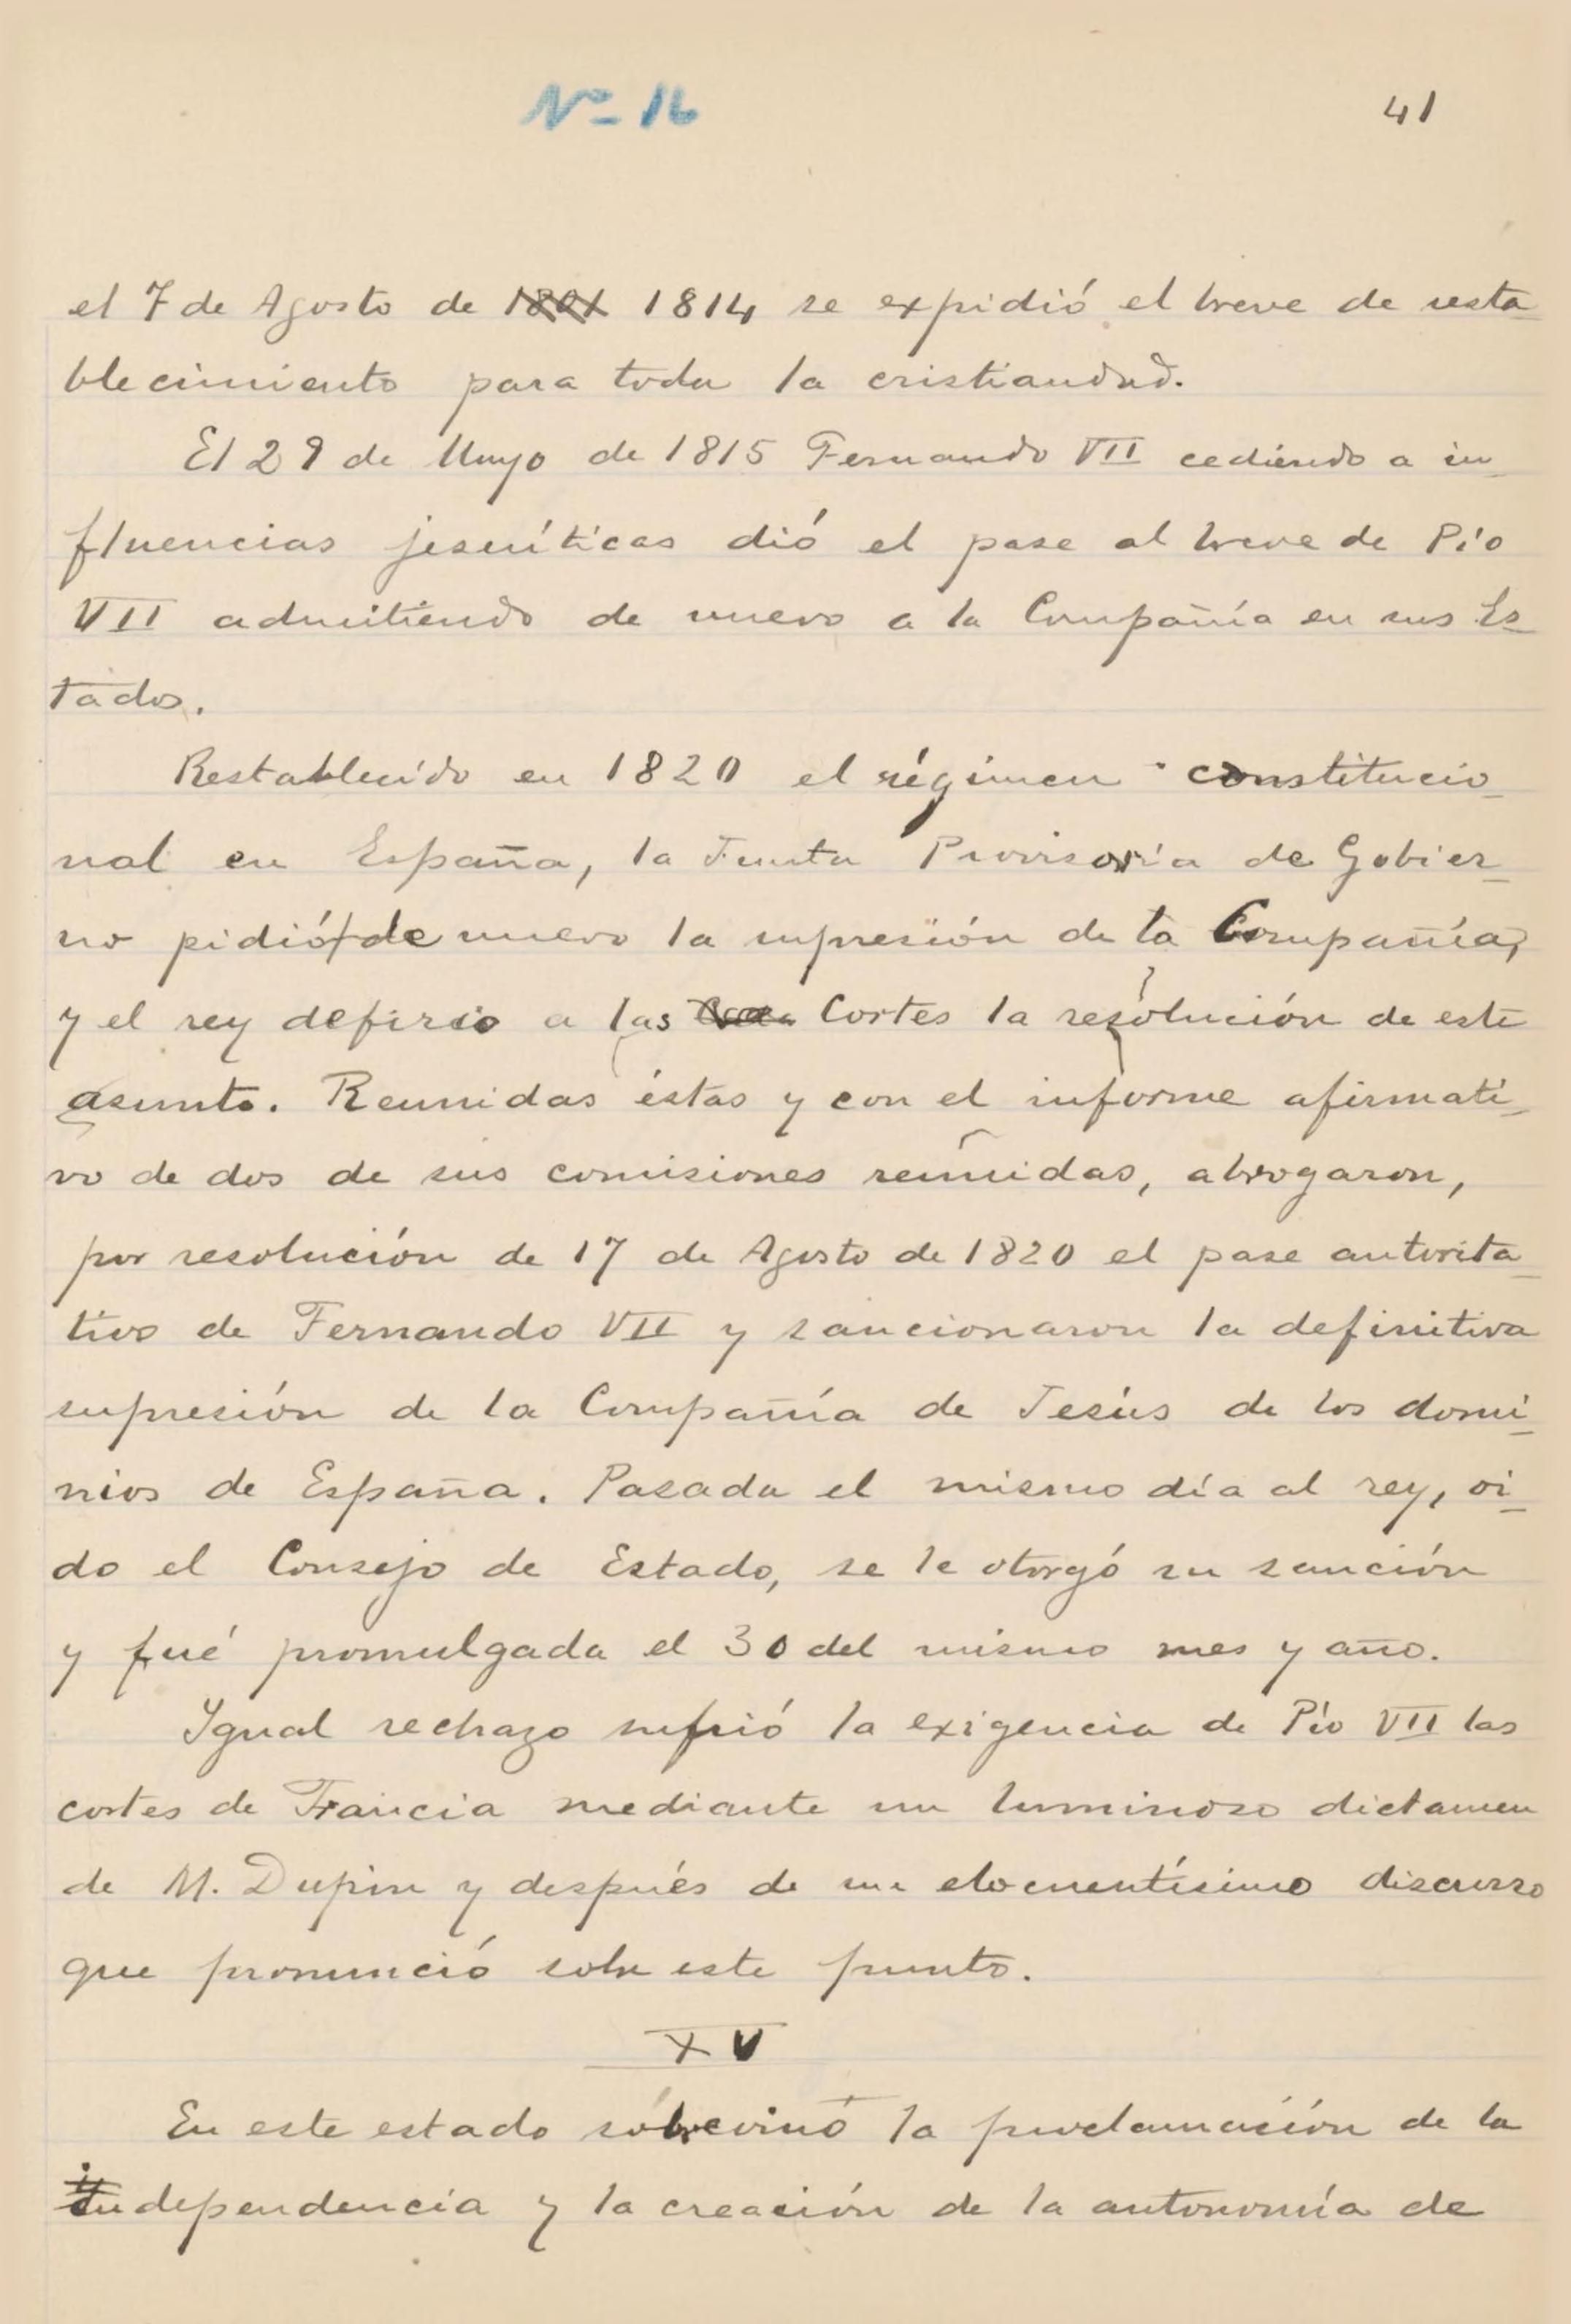 Nº 16
41
el 7 de Agosto de 1801 1814 se expidió el breve de resta
blecimiento para toda la cristiandad.
El 29 de Mayo de 1815 Fernando VII cediendo a in
fluencias jesuíticas dió el pase al breve de Pío
VII admitiendo de nuevo a la Compañía en sus Es
tados.
Restablecido en 1820 el régimen constitucio
nal en España, la Junta Provisoria de Gobier
no pidió de nuevo la supresión de la Compañía,
y el rey defirió a las Cortes la resolución de este
asunto. Reunidas éstas y con el informe afirmati
vo de dos de sus comisiones reunidas, abrogaron,
por resolución de 17 de Agosto de 1820 el pase autorita
tivo de Fernando VII y sancionaron la definitiva
supresión de la Compañía de Jesús de los domi
nios de España. Pasada el mismo día al rey, oi
do el Consejo de Estado, se le otorgó su sanción
y fué promulgada el 30 del mismo mes y año.
Igual rechazo sufrió la exigencia de Pío VII las
cortes de Francia mediante un luminoso dictamen
de M. Dupin y después de un elocuentísimo discurso
que pronunció sobre este punto.
XV
En este estado sobrevino la proclamación de la
independencia y la creación de la autonomía de